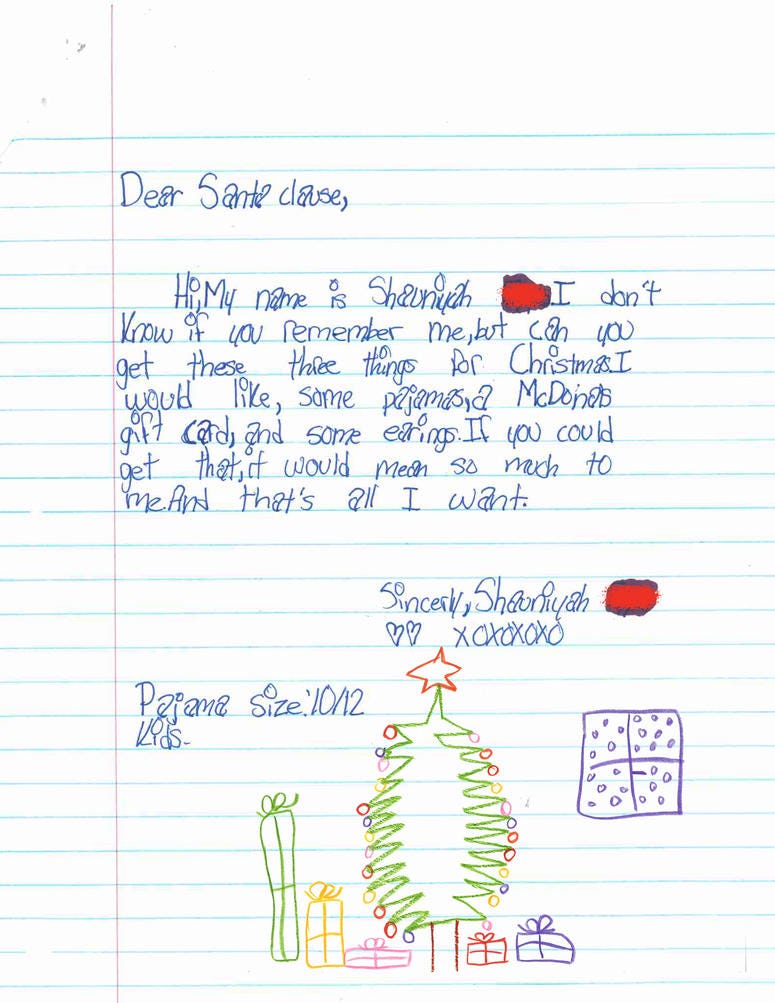 Dear Santa clause,
Hi,My name is Shauniyah I don't
know if you remember me,but can you
get these three things for Christmas.I
would like, some pajamas,a McDonas
gift card, and some earings.If you could
get that,it would mean so much to
me.And that's all I want.
Sincerly,Shauniyah
♡♡ xoxoxoxo
Pajama size:10/12
kids.